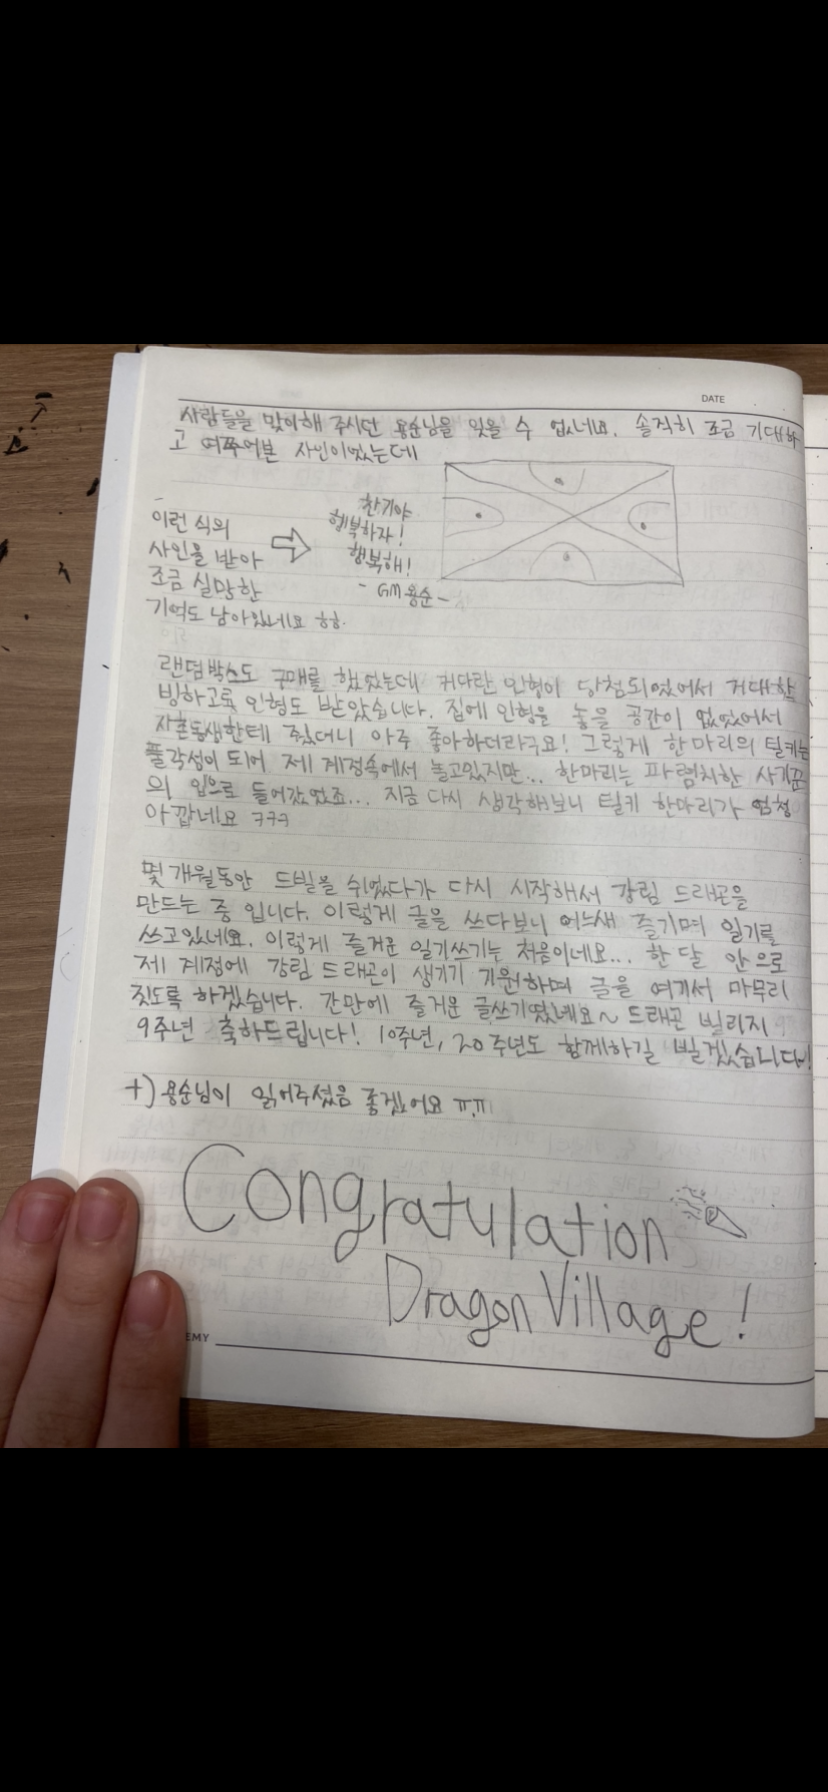 DATE
사람들을 맞이해 주시던 용순님을 잊을 수 없네요. 솔직히 조금 기대하
고 여쭈어본 사인이었는데
이런 식의
사인을 받아
조금 실망한
기억도 남아있네요 ㅎㅎ.
찬기야
행복하자!
행복해!
- GM용순 -
랜덤박스도 구매를 했었는데 커다란 인형이 당첨되었어서 거대한
빙하고룡 인형도 받았습니다. 집에 인형을 놓을 공간이 없었어서
사촌동생한테 줬더니 아주 좋아하더라구요! 그렇게 한마리의 틸키는
풀각성이 되어 제 계정속에서 놀고있지만... 한마리는 파렴치한 사기꾼
의 입으로 들어갔었죠... 지금 다시 생각해보니 틸키 한마리가 엄청
아깝네요 ㅋㅋㅋ
몇 개월동안 드빌을 쉬었다가 다시 시작해서 강림 드래곤을
만드는 중 입니다. 이렇게 글을 쓰다보니 어느새 즐기며 일기를
쓰고있네요. 이렇게 즐거운 일기쓰기는 처음이네요... 한 달 안으로
제 계정에 강림 드래곤이 생기기 기원하며 글을 여기서 마무리
짓도록 하겠습니다. 간만에 즐거운 글쓰기였네요~ 드래곤 빌리지
9주년 축하드립니다! 10주년, 20주년도 함께하길 빌겠습니다!
+) 용순님이 읽어주셨음 좋겠어요 ㅠ.ㅠ
Congratulation
Dragon Village!
EMY